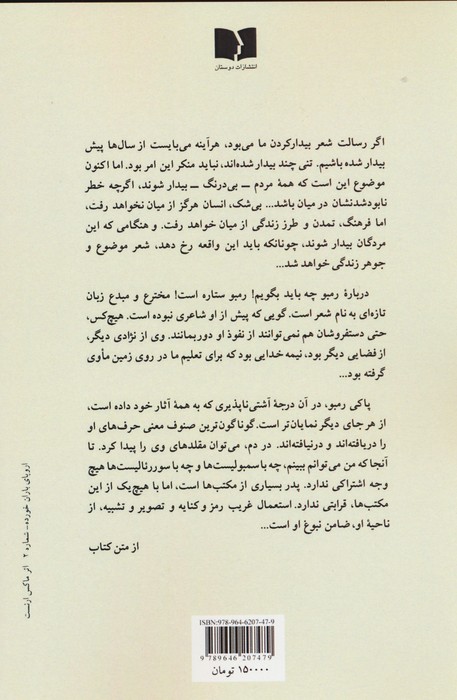 انتشارات دوستان
اگر رسالت شعر بیدارکردن ما می‌بود، هرآینه می‌بایست از سال‌ها پیش
بیدار شده باشیم. تنی چند بیدار شده‌اند، نباید منکر این امر بود. اما اکنون
موضوع این است که همهٔ مردم ــ بی‌درنگ ــ بیدار شوند، اگرچه خطر
نابودشدنشان در میان باشد... بی‌شک، انسان هرگز از میان نخواهد رفت،
اما فرهنگ، تمدن و طرز زندگی از میان خواهد رفت. و هنگامی که این
مردگان بیدار شوند، چونانکه باید این واقعه رخ دهد، شعر موضوع و
جوهر زندگی خواهد شد...
دربارهٔ رمبو چه باید بگویم! رمبو ستاره است! مخترع و مبدع زبان
تازه‌ای به نام شعر است. گویی که پیش از او شاعری نبوده است. هیچ‌کس،
حتی دستفروشان هم نمی‌توانند از نفوذ او دوربمانند. وی از نژادی دیگر،
از فضایی دیگر بود، نیمه خدایی بود که برای تعلیم ما در روی زمین مأوی
گرفته بود...
پاکی رمبو، در آن درجهٔ آشتی‌ناپذیری که به همهٔ آثار خود داده است،
از هرجای دیگر نمایان‌تر است. گوناگون‌ترین صنوف معنی حرف‌های او
را دریافته‌اند و درنیافته‌اند. در دم، می‌توان مقلدهای وی را پیدا کرد. تا
آنجا که من می‌توانم ببینم، چه با سمبولیست‌ها و چه با سوررئالیست‌ها هیچ
وجه اشتراکی ندارد. پدر بسیاری از مکتب‌ها است، اما با هیچ‌یک از این
مکتب‌ها، قرابتی ندارد. استعمال غریب رمز و کنایه و تصویر و تشبیه، از
ناحیهٔ او، ضامن نبوغ او است...
از متن کتاب
اروپای باران خورده – شماره ۲ اثر ماکس ارنست
ISBN:978-964-6207-47-9
9 789646 207479
۱۵۰۰۰۰ تومان